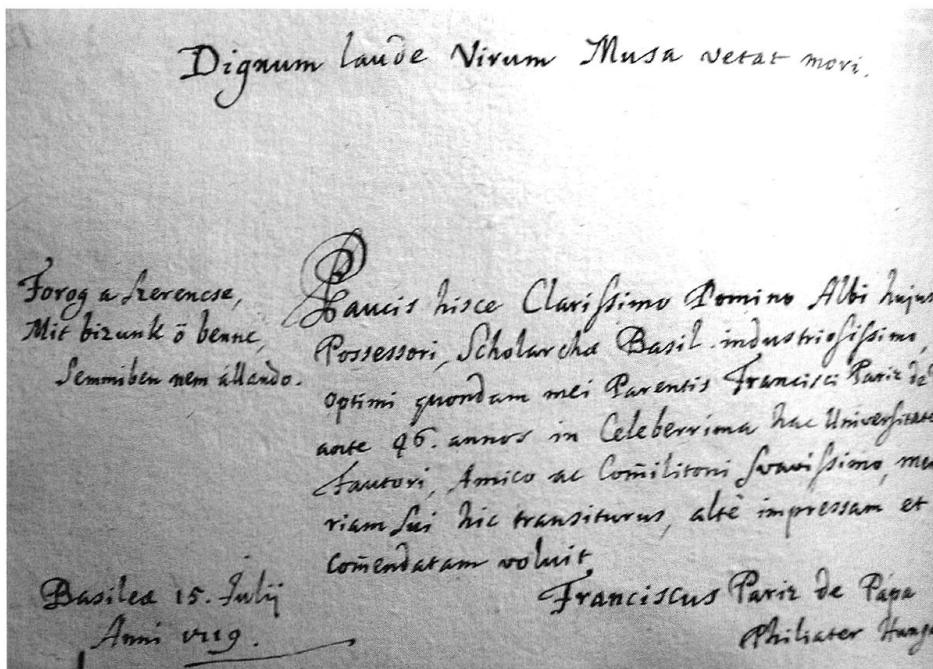 Dignum laude Virum Musa vetat mori.
Forog a szerencse,
Mit bizunk ö benne,
Semmiben nem állando.
Paucis hisce Clarissimo Domino Albi hujus
Possessori, Scholarchæ Basil. industriosissimo,
optimi quondam mei Parentis Francisci Pariz de
ante 46. annos in Celeberrima hac Universitate
Fautori, Amico ac Com̃ilitoni Svavissimo, me
riam sui hic transiturus, altè impressam et
com̃endatam voluit
Basileæ 15. Julij
Anni 1719.
Franciscus Pariz de Pápa
Philiater Hung